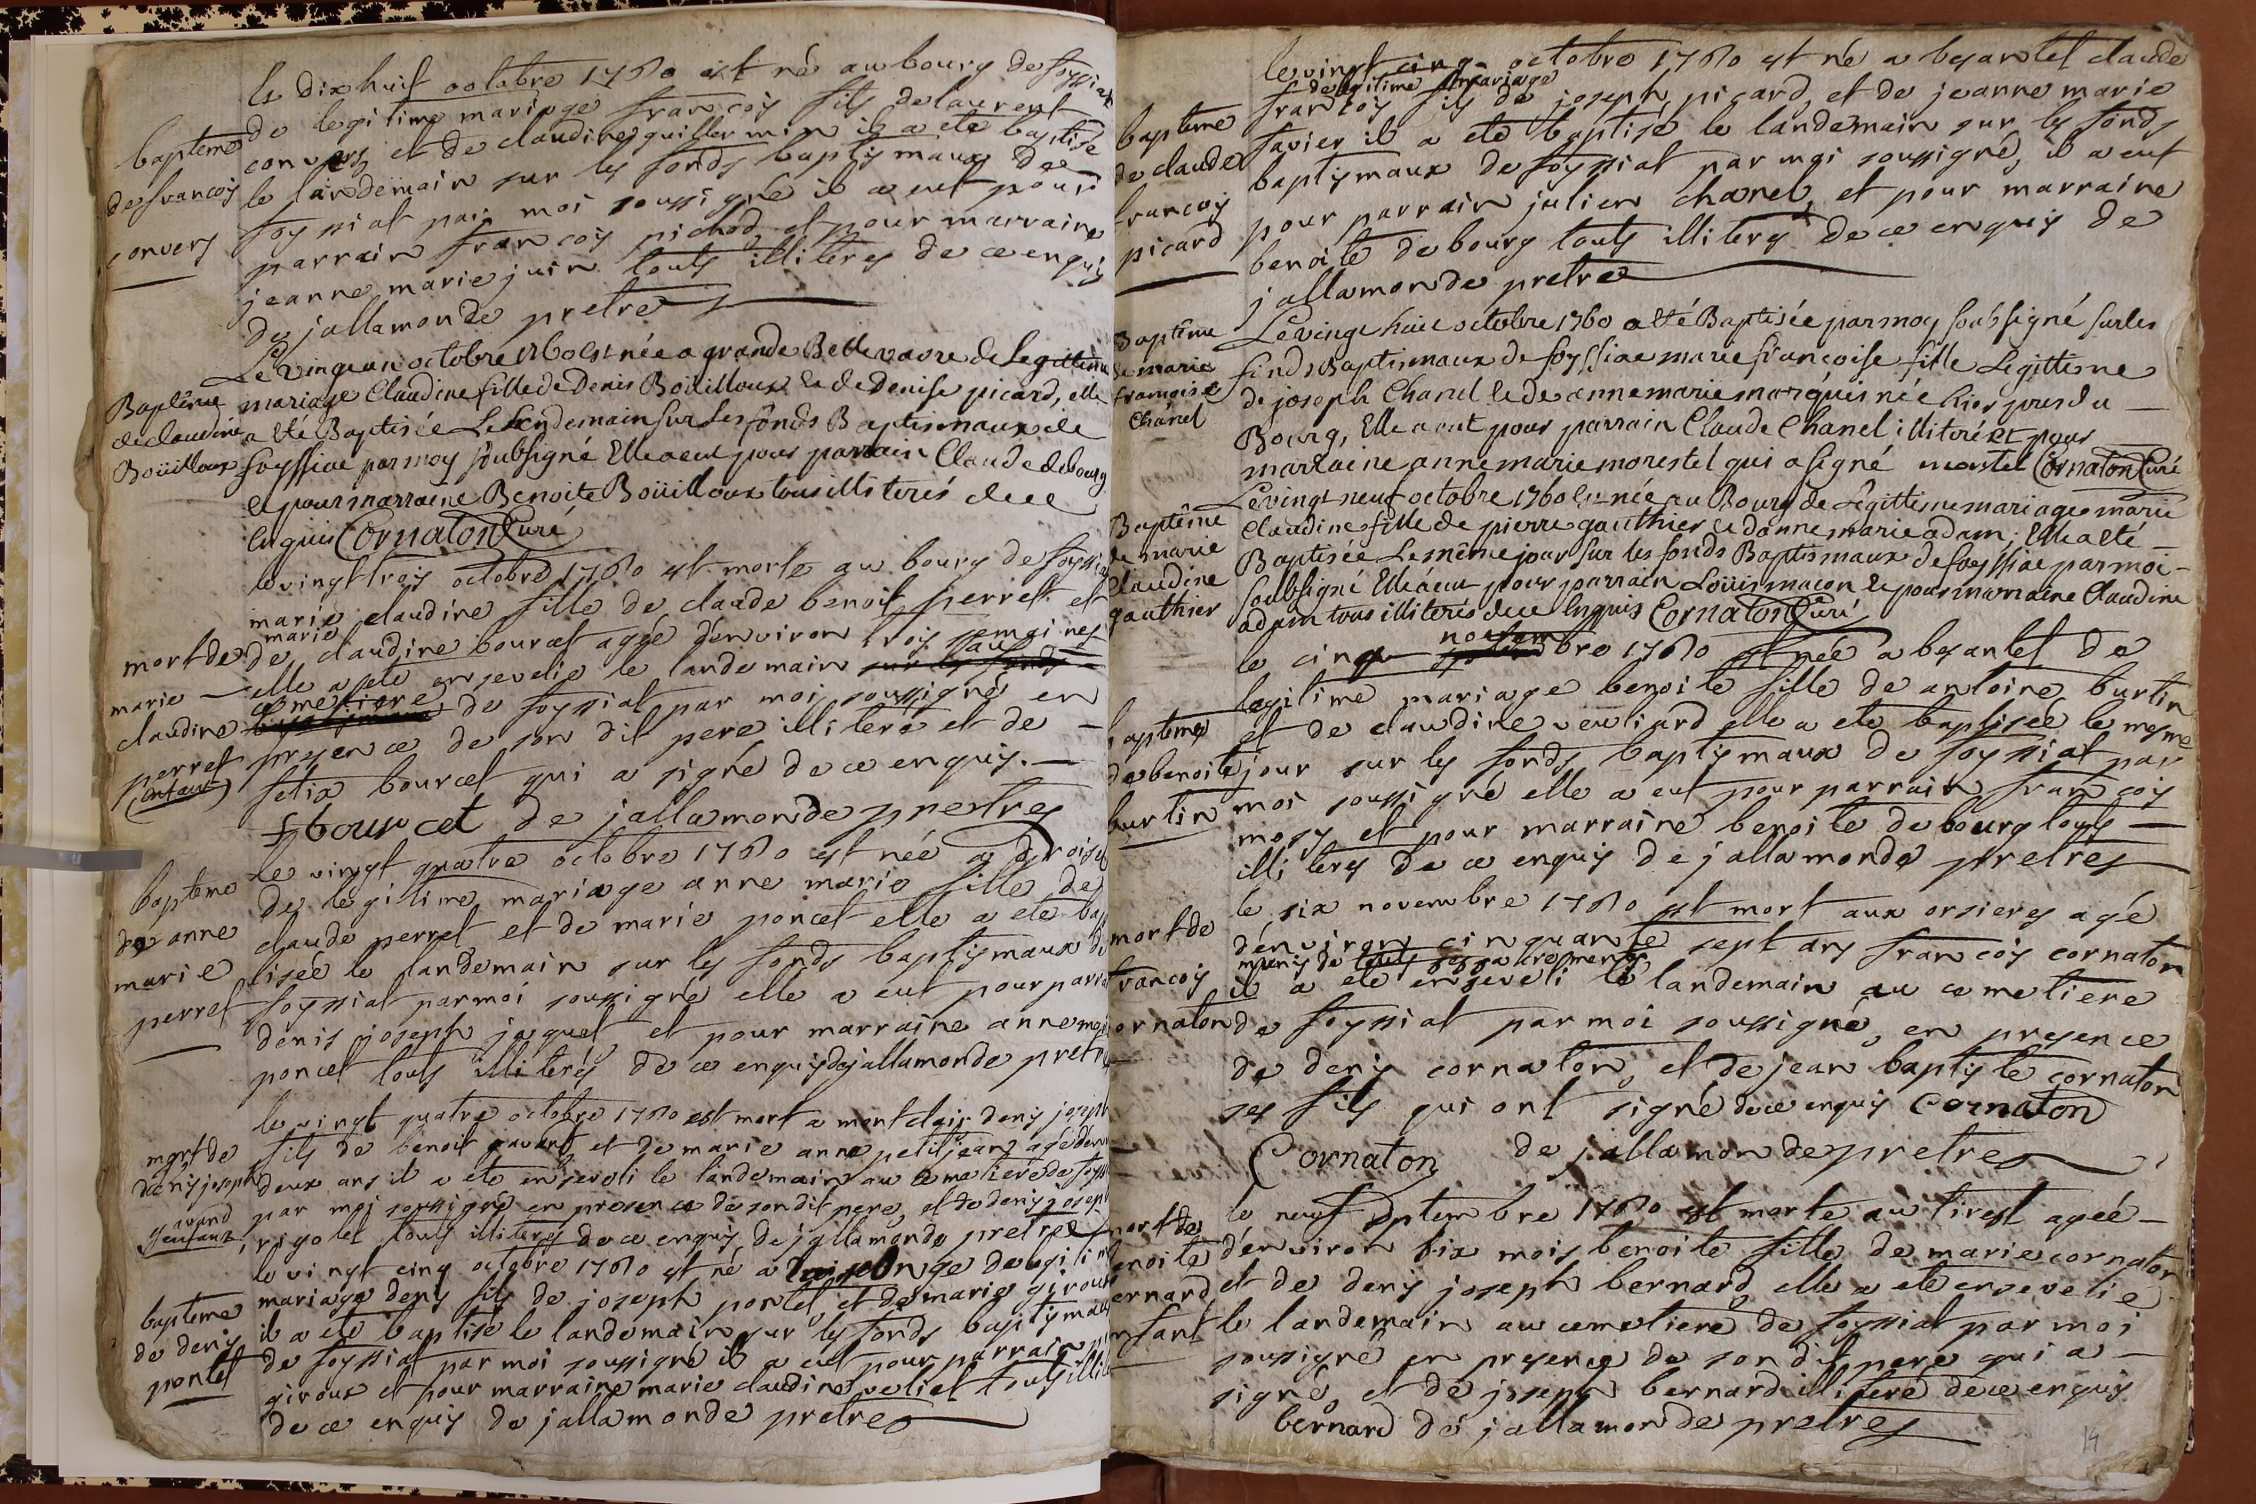 le dix huit octobre 1760 est né au bourg de foyssiat
de legitime mariage francois fils de laurent
convers et de claudine guillermin il a eté baptisé
le landemain sur les fonds baptismaux de
foyssiat par moi soussigné il a eut pour
parrain francois pichod et pour marraine
jeanne marie juin touts illiterés de ce enquis
de jallamonde pretre
bapteme
de francois
convers
Le vingt un octobre 1760 est née a grande Bellevavre de legittime
mariage Claudine fille de Denis Boüilloux et de Denise picard, elle
a été Baptisée Le Lendemain sur Les fonds Baptismaux de
foyssiat par moy soubsigné Elle a eut pour parrain Claude debourg
et pour marraine Benoite Boüilloux tous illiterés de ce
enquis Cornaton Curé
Baptême
de claudine
Boüilloux
le vingt trois octobre 1760 est morte au bourg de foyssiat
marie claudine fille de claude benoit perret et
de marie claudine bourcet agée d'environ trois semaines
elle a eté ensevelie le landemain sur les fonds au
cemetiere de foyssiat par moi soussigné en
presence de son dit pere illiteré et de
felix bourcet qui a signé de ce enquis.
f bourcet de jallamonde pretre
mort de
marie
claudine
perret
(enfant)
le vingt quatre octobre 1760 est née a
de legitime mariage anne marie fille de
claude perret et de marie poncet elle a eté bap
tisée le landemain sur les fonds baptismaux de
foyssiat par moi soussigné elle a eut pour parrain
denis joseph jaquet et pour marraine anne marie
poncet touts illiterés de ce enquis de jallamonde pretre
bapteme
de anne
marie
perret
le vingt quatre octobre 1760 est mort a montclair denis joseph
fils de benoit pavand et de marie anne petitjean agé d'environ
deux ans il a eté enseveli le landemain au cemetiere de foyssiat
par moi soussigné en presence de son dit pere et de denis joseph
rigolet touts illiterés de ce enquis de jallamonde pretre
mort de
denis joseph
pavand
enfant
le vingt cinq octobre 1760 est né a de legitime
mariage denis fils de joseph pontet et de marie giroux
il a eté baptisé le landemain sur les fonds baptismaux
de foyssiat par moi soussigné il a eut pour parrain
giroux et pour marraine marie claudine veliet touts illiterés
de ce enquis de jallamonde pretre
bapteme
de denis
pontet
le vingt cinq octobre 1760 est né a besantet claude
francois de legitime mariage fils de joseph picard, et de jeanne marie
favier il a eté baptisé le landemain sur les fonds
baptismaux de foyssiat par moi soussigné, il a eut
pour parrain julien chanel, et pour marraine
benoite debourg touts illiterés de ce enquis de
jallamonde pretre
bapteme
de claude
francois
picard
Le vingt huit octobre 1760 a été Baptisée par moy soubsigné sur les
fonds Baptismaux de foyssiat marie françoise fille Legittime
de joseph Chanel et de anne marie marquis née hier pres du
Bourg, Elle a eut pour parrain Claude Chanel illiteré et pour
marraine anne marie morestel qui a signé morestel Cornaton Curé
Baptême
de marie
françoise
Chanel
Le vingt neuf octobre 1760 est née au Bourg de Légittime mariage marie
Claudine fille de pierre gauthier et d'anne marie adam; Elle a été
Baptisée Le même jour sur les fonds Baptismaux de foyssiat par moi
soubsigné Elle a eut pour parrain Loüis maçon et pour marraine Claudine
adam tous illiterés de ce enquis Cornaton Curé
Baptême
de marie
Claudine
gauthier
le cinq novembre 1760 est née a besantet de
legitime mariage benoite fille de antoine burtin
et de claudine veuliard elle a eté baptisée le mesme
jour sur les fonds baptismaux de foyssiat par
moi soussigné elle a eut pour parrain francois
mosy et pour marraine benoite debourg touts
illiterés de ce enquis de jallamonde pretre
bapteme
de benoite
burtin
le six novembre 1760 est mort aux orsieres agé
d'environ cinquante sept ans francois cornaton
munis de touts ses sacrements
il a eté enseveli le landemain au cemetiere
de foyssiat par moi soussigné, en presence
de denis cornaton, et de jean baptiste cornaton
ses fils qui ont signé de ce enquis Cornaton
Cornaton de jallamonde pretre
mort de
francois
cornaton
le neuf septembre 1760 est morte au tiret agée
d'environ six mois benoite fille de marie cornaton
et de denis joseph bernard, elle a eté ensevelie
le landemain au cemetiere de foyssiat par moi
soussigné en presence de son dit pere qui a
signé, et de joseph bernard illiteré de ce enquis
bernard de jallamonde pretre
mort de
benoite
bernard
enfant
14